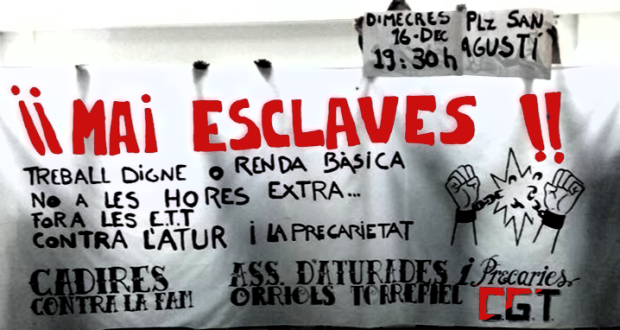 DIMECRES
16-DEC
19:30h
PLZ SAN
AGUSTÍ
¡¡MAI ESCLAVES!!
TREBALL DIGNE o RENDA BÀSICA
NO A LES HORES EXTRA...
FORA LES E.T.T
CONTRA L'ATUR i LA PRECARIETAT
CADIRES
CONTRA LA FAM
ASS. D'ATURADES i Precaries
ORRIOLS TORREFIEL
C.G.T.